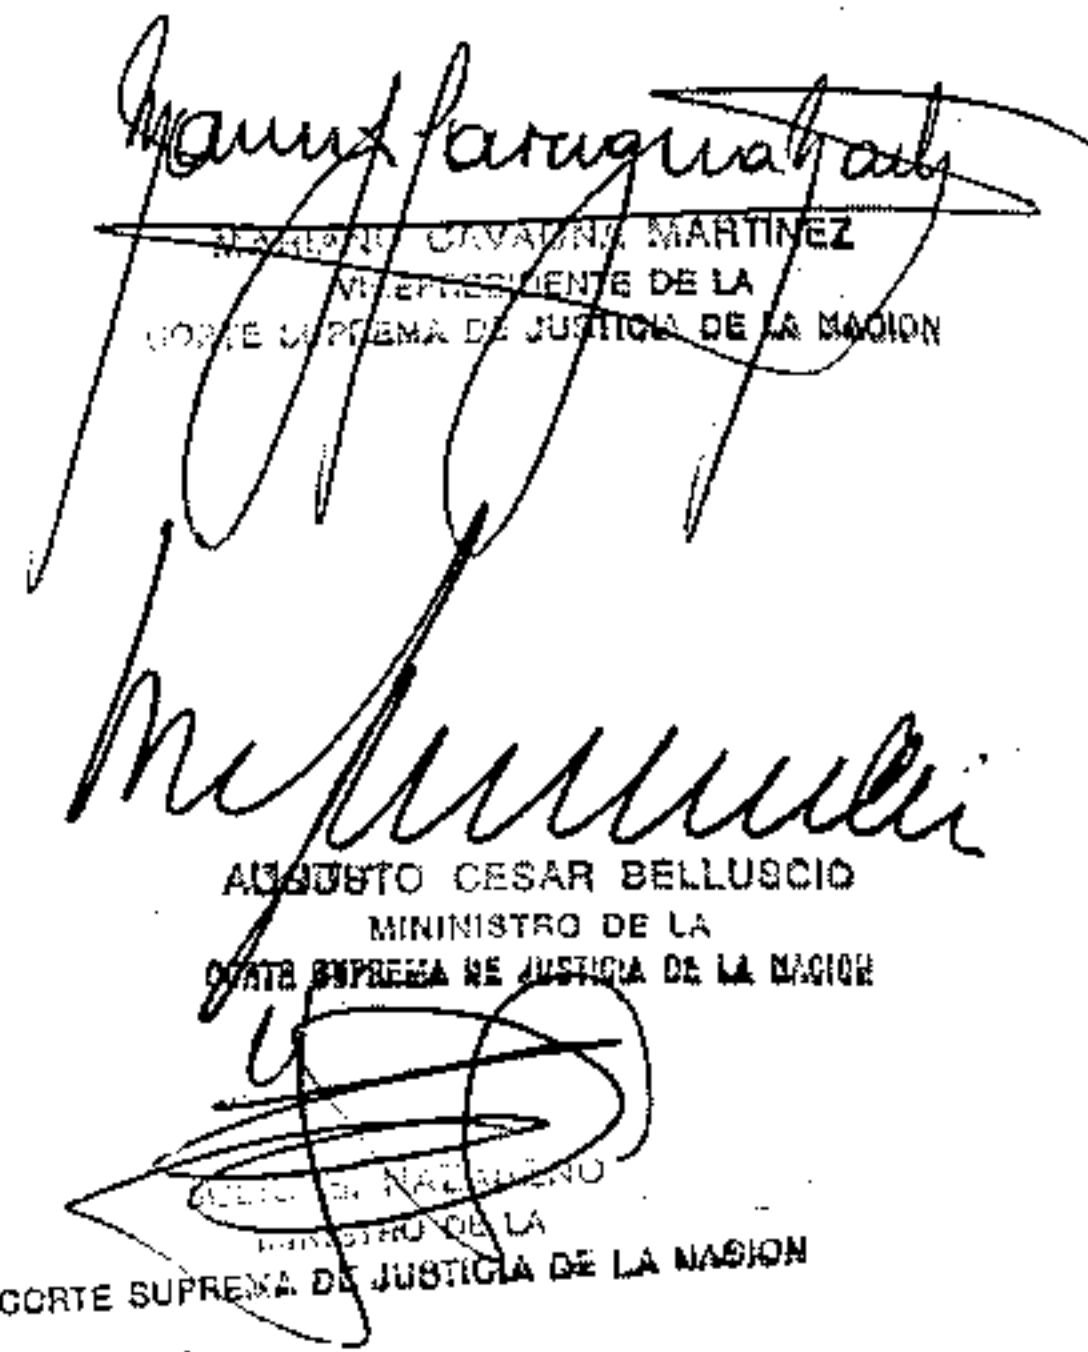 MARIANO CAVAGNA MARTINEZ
VICEPRESIDENTE DE LA
CORTE SUPREMA DE JUSTICIA DE LA NACION
AUGUSTO CESAR BELLUSCIO
MININISTRO DE LA
CORTE SUPREMA DE JUSTICIA DE LA NACION
NAZARENO
MINISTRO DE LA
CORTE SUPREMA DE JUSTICIA DE LA NACION